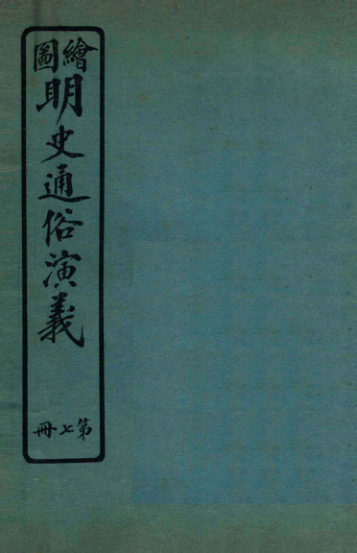 繪圖
明史通俗演義
第七冊